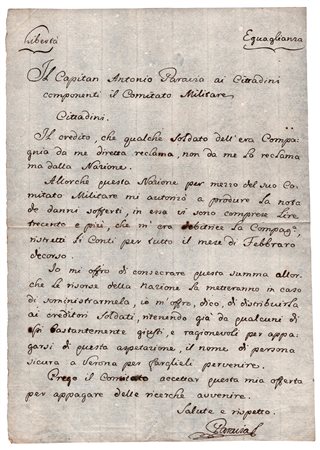 Libertà Eguaglianza
Il Capitan Antonio Paravia ai Cittadini
componenti il Comitato Militare
Cittadini.
Il credito, che qualche Soldato dell'era Compa=
gnia da me diretta reclama, non da me lo reclama
ma dalla Nazione.
Allorchè questa Nazione per mezzo del suo Co=
mitato Militare mi autorizò a produre la nota
de danni sofferti, in essa vi sono comprese Lire
trecento e più, che m'era debitrice la Compag.ª,
ristretti li Conti per tutto il mese di Febbraro
decorso.
Io mi offro di consecrare questa summa allor=
chè le risorse della Nazione la metteranno in caso
di somministrarmela, io m'offro, dico, di distribuirla
ai creditori Soldati, ottenendo già da qualcuni di
essi bastantemente giusti e ragionevoli per appa=
garsi di questa aspetazione, il nome di persona
sicura a Verona per farglieli pervenire.
Prego il Comitato accettar questa mia offerta
per appagare delle ricerche avvenire.
Salute e rispetto.
Paravia